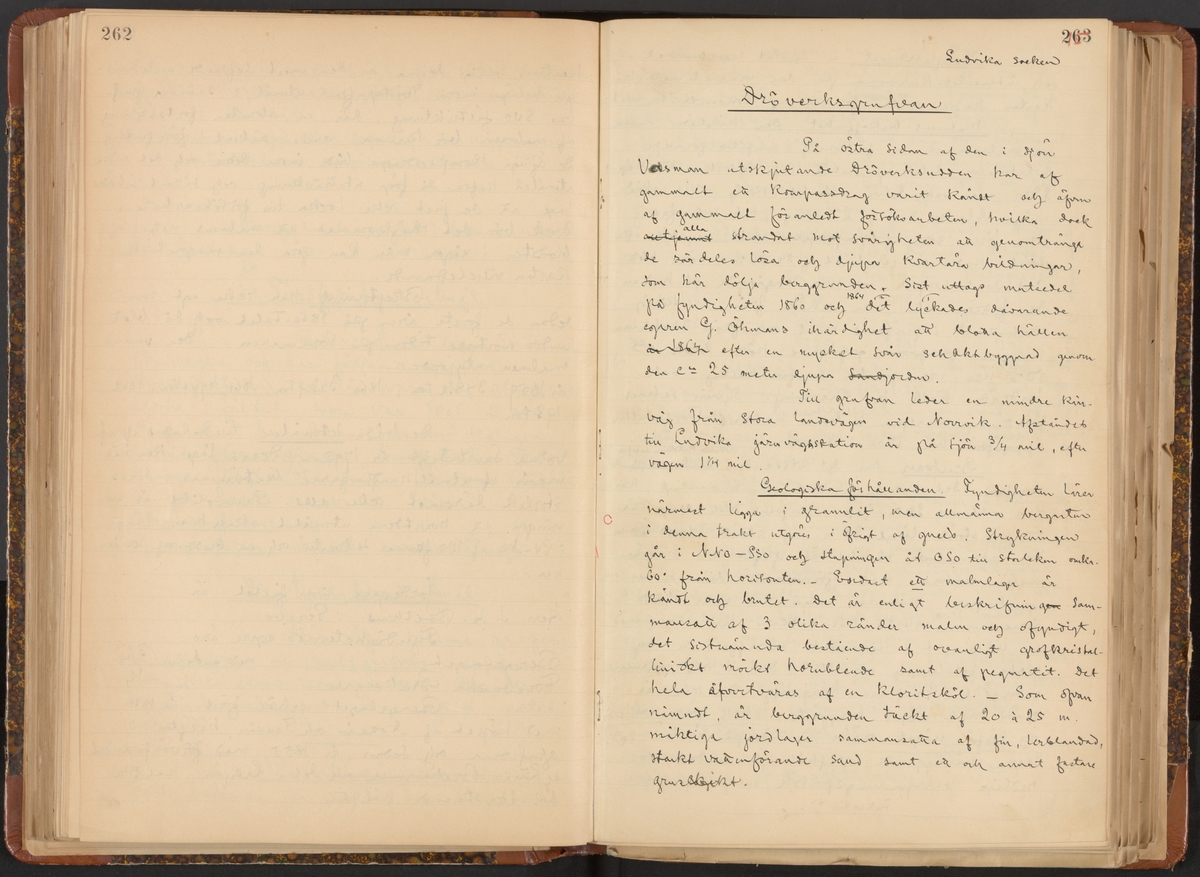 262
263
Ludvika socken
Dröverksgrufvan
På östra sidan af den i sjön
Väsman utskjutande Dröverksudden har af
gammalt ett kompassdrag varit kändt och äfven
af gammalt föranledt försöksarbeten, hvilka dock
alla
strandat mot svårigheten att genomtränga
de särdeles lösa och djupa kvartära bildningar,
som här dölja berggrunden. Sist uttogs mutsedel
på fyndigheten 1860 och 1864 det lyckades dåvarande
egaren G. Öhmans ihärdighet att blotta hällen
i 1864 efter en mycket svår schaktbyggnad genom
den ca 25 meter djupa Sandjorden.
Till grufvan leder en mindre kör-
väg från stora landsvägen vid Norrvik. Afståndet
till Ludvika järnvägsstation är på sjön 3/4 mil, efter
vägen 1 1/4 mil.
Geologiska förhållanden. Fyndigheten lärer
närmast ligga i granulit, men allmänna bergarten
i denna trakt utgöres i öfrigt af gneis. Strykningen
går i NNO-SSO och stupningen åt OSO till storleken omkr.
60° från horizonten. — Endast ett malmlager är
kändt och brutet. Det är enligt beskrifningen sam-
mansatt af 3 olika ränder malm och ofyndigt,
det sistnämnda bestående af ovanligt grofkristal-
liniskt mörkt hornblende samt af pegmatit. Det
hela åfvertväras af en kloritsköl. — Som ofvan
nämndt, är berggrunden täckt af 20 à 25 m.
mäktiga jordlager sammansatta af fin, lerblandad,
starkt vattenförande sand samt ett och annat fastare
grusskikt.